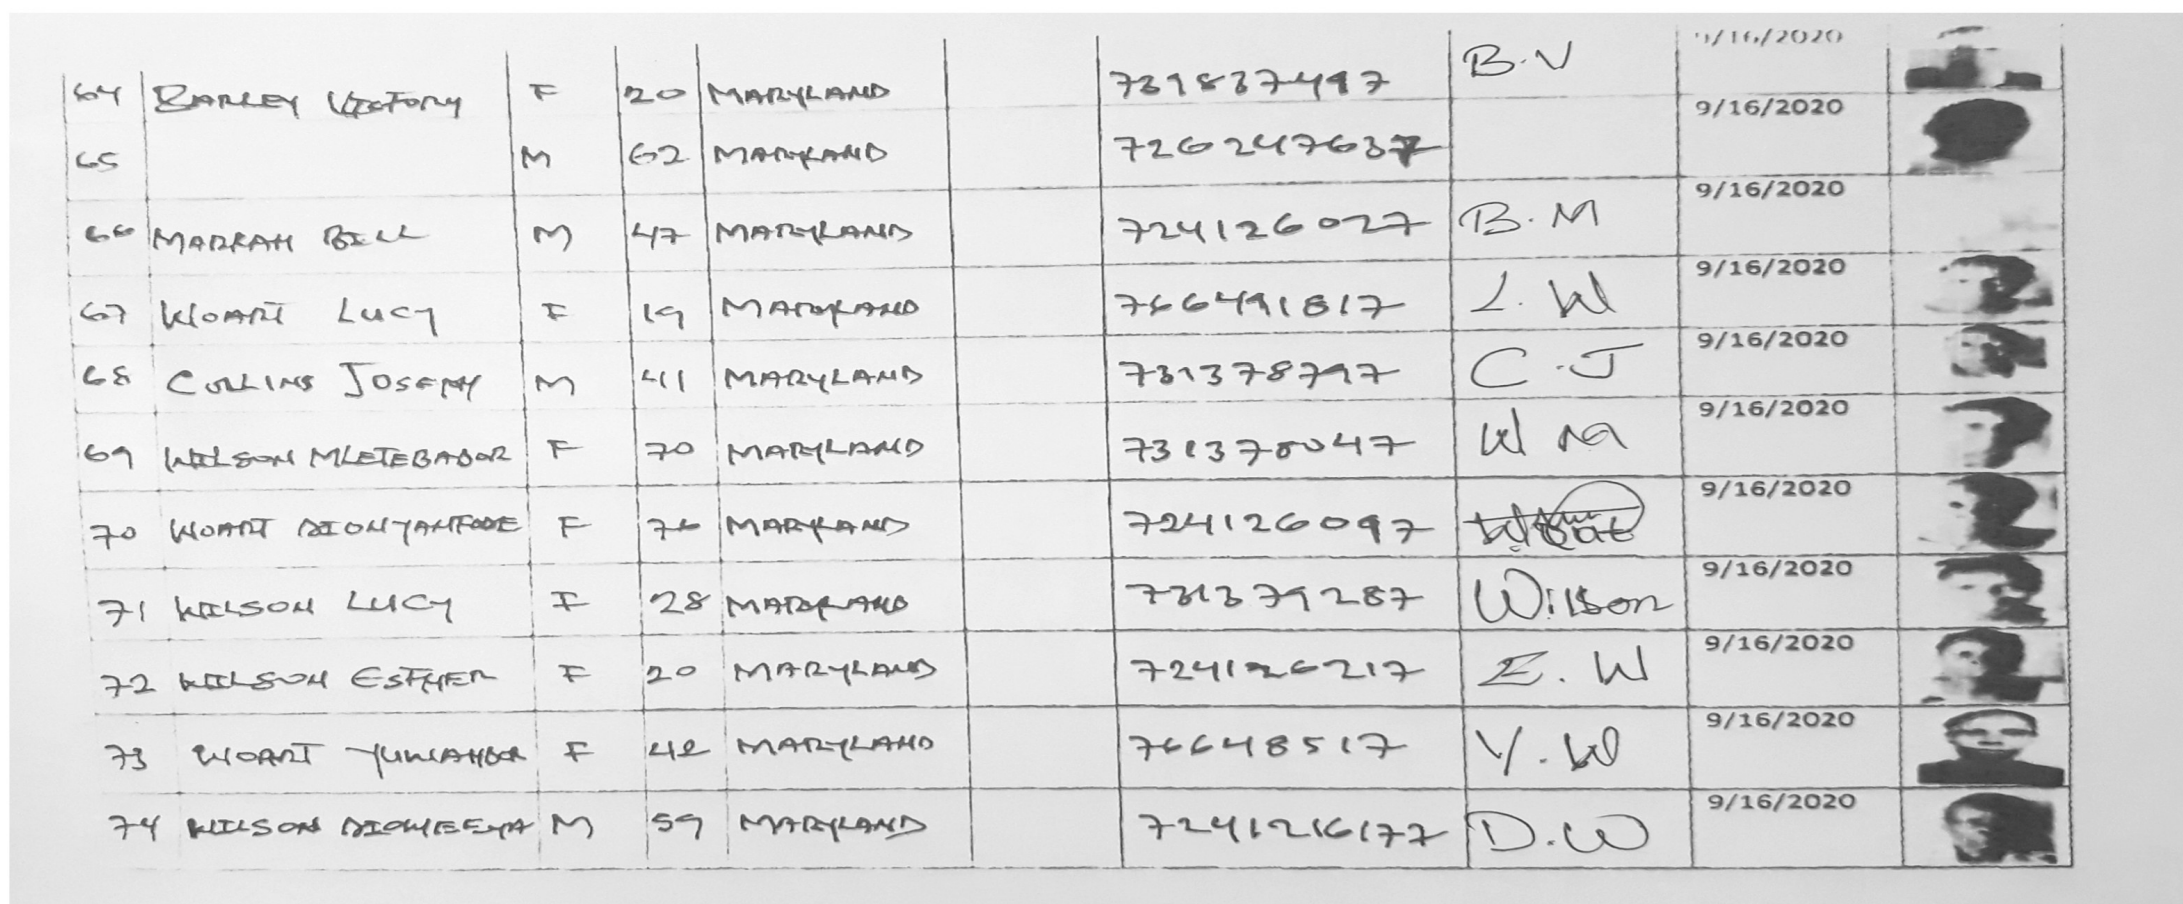 64 BARLEY VICTORY F 20 MARYLAND 739837497 B.V 9/16/2020
65 M 62 MARYLAND 726247637 9/16/2020
66 MARRAH BILL M 47 MARYLAND 724126027 B.M 9/16/2020
67 WOART LUCY F 19 MARYLAND 766491817 L.W 9/16/2020
68 COLLINS JOSEPH M 41 MARYLAND 731378797 C.J 9/16/2020
69 WILSON MLETEBADOR F 70 MARYLAND 731378047 W M 9/16/2020
70 WOART F 76 MARYLAND 724126097 9/16/2020
71 WILSON LUCY F 28 MARYLAND 731379287 Wilson 9/16/2020
72 WILSON ESTHER F 20 MARYLAND 724126217 E.W 9/16/2020
73 WOART F 42 MARYLAND 76648517 Y.W 9/16/2020
74 WILSON M 59 MARYLAND 7241216177 D.W 9/16/2020